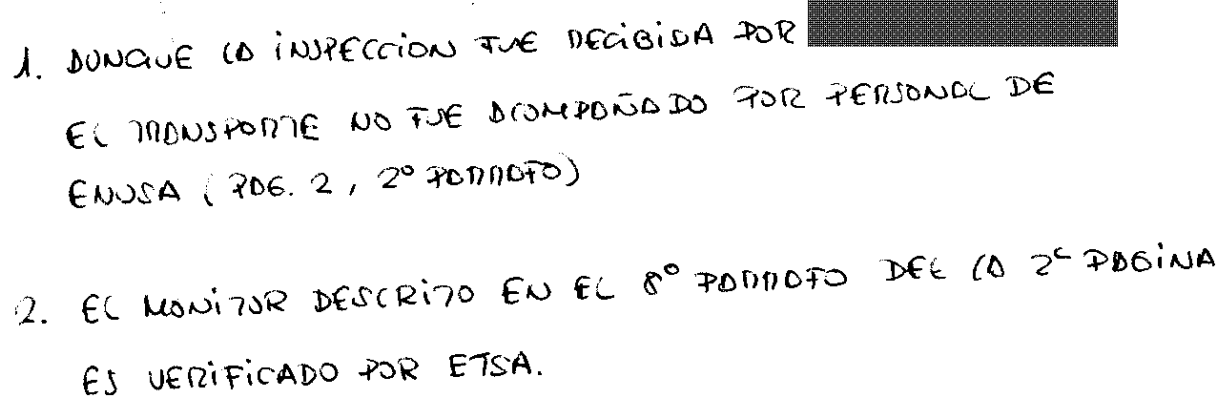 1. AUNQUE LA INSPECCION FUE RECIBIDA POR
EL TRANSPORTE NO FUE ACOMPAÑADO POR PERSONAL DE
ENUSA (PAG. 2, 2º PARRAFO)
2. EL MONITOR DESCRITO EN EL 8º PARRAFO DEL LA 2ª PAGINA
ES VERIFICADO POR ETSA.